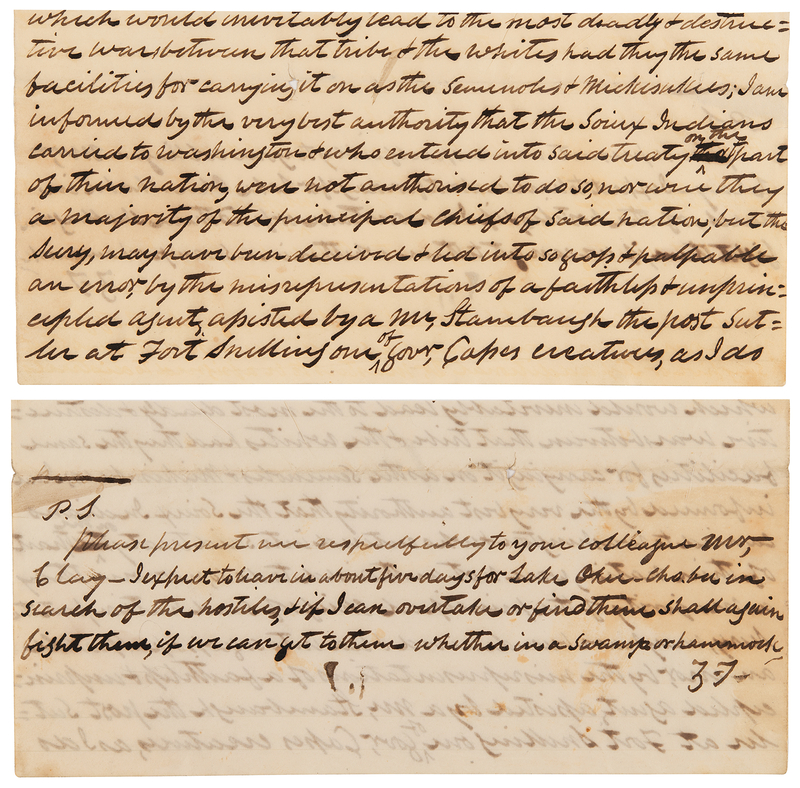 which would inevitably lead to the most deadly & destruc=
tive wars between that tribe & the whites had they the same
facilities for carrying it on as the Seminoles & Mickisukies; I am
informed by the very best authority that the Soiux Indians
on the
carried to Washington & who entered into said treaty part
of their nation, were not authorised to do so, nor were they
a majority of the principal chiefs of said nation; but they
Sury, may have been deceived & led into so gross & palpable
an error, by the misrepresentations of a faithless & unprin=
cipled agent, assisted by a Mr, Stambaugh the post Sut=
ler at Fort Snelling one of Govr, Capes creatures, as I do
P.S.
Please present me respectfully to your colleague Mr,
Clay – I expect to leave in about five days for Lake Oke-cho.be in
search of the hostiles, & if I can overtake or find them shall again
fight them, if we can get to them whether in a swamp or hammock
Z T